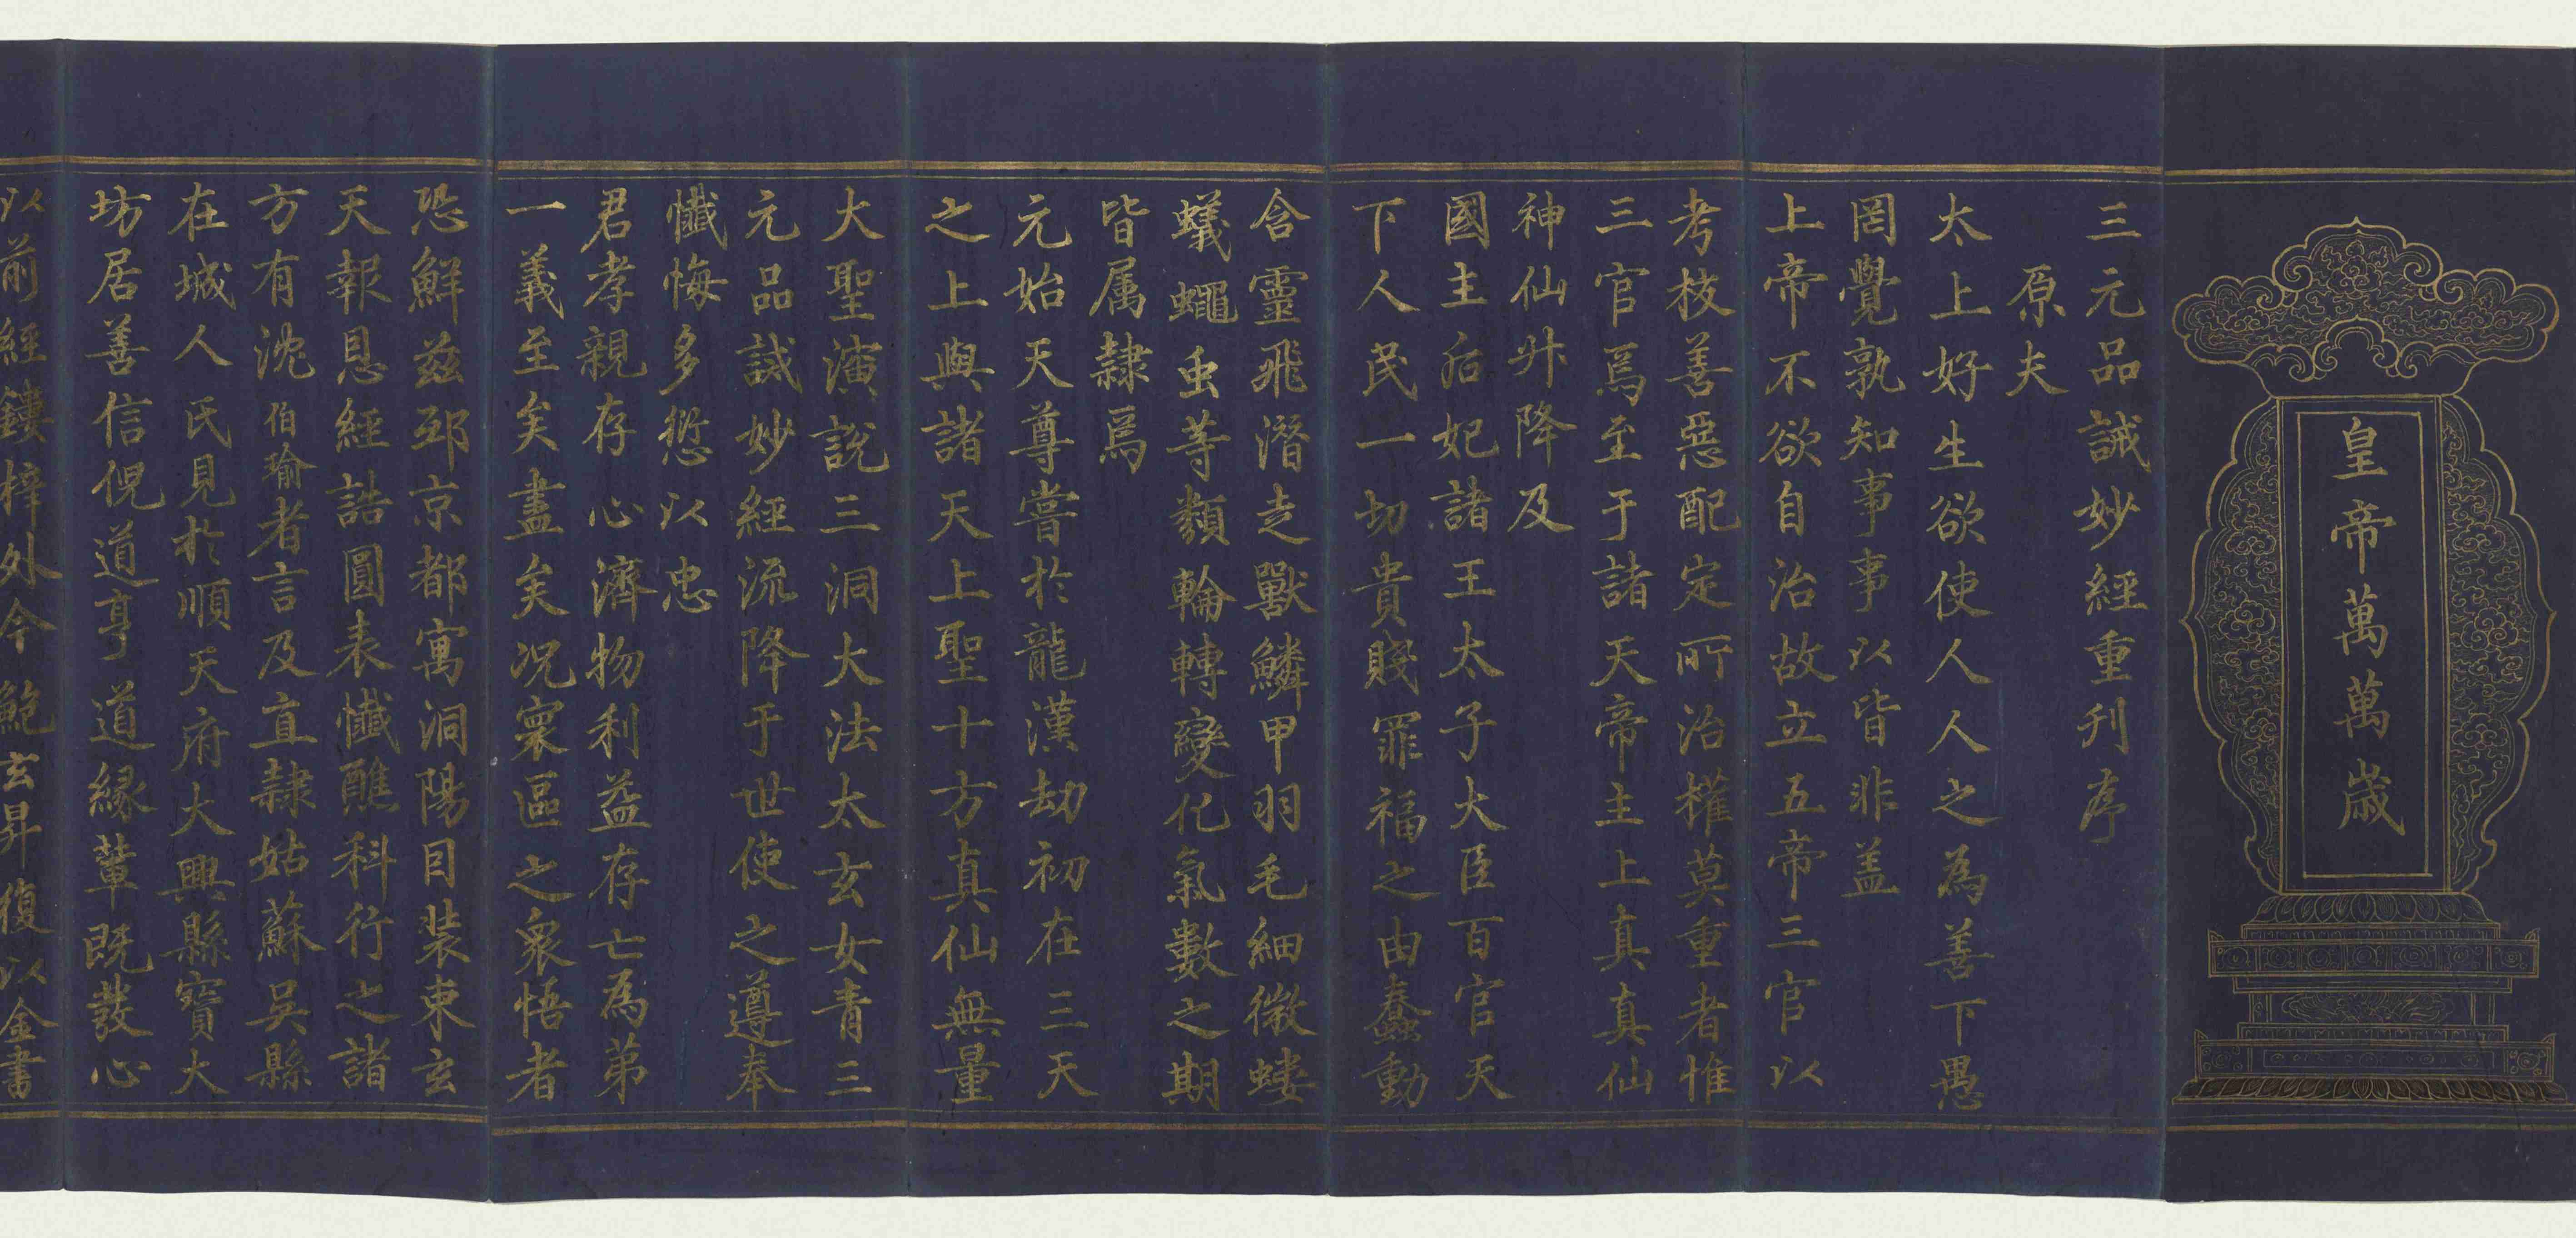 皇帝萬萬歲
三元品誡妙經重刋序
原夫
太上好生欲使人人之為善下愚
罔覺孰知事事以皆非盖
上帝不欲自治故立五帝三官以
考校善惡配定所治權莫重者惟
三官焉至于諸天帝主上真真仙
神仙升降及
國主后妃諸王太子大臣百官天
下人民一切貴賤罪福之由蠢動
含靈飛潛走獸鱗甲羽毛細微螻
蟻蠅虫等類輪轉變化氣數之期
皆属隷焉
元始天尊嘗於龍漢劫初在三天
之上與諸天上聖十方真仙無量
大聖演說三洞大法太玄女青三
元品誡妙經流降于世使之遵奉
懺悔多愆以忠
君孝親存心濟物利益存亡為第
一義至矣盡矣况寰區之衆悟者
恐鮮兹邳京都寓洞陽目裝東玄
天報恩經誥圓表懺醮科行之諸
方有沈伯瑜者言及直隷姑蘇吳縣
在城人氏見於順天府大興縣寶大
坊居善信倪道亨道緣輩既發心
以前經鏤梓外今鮑玄昇復以金書